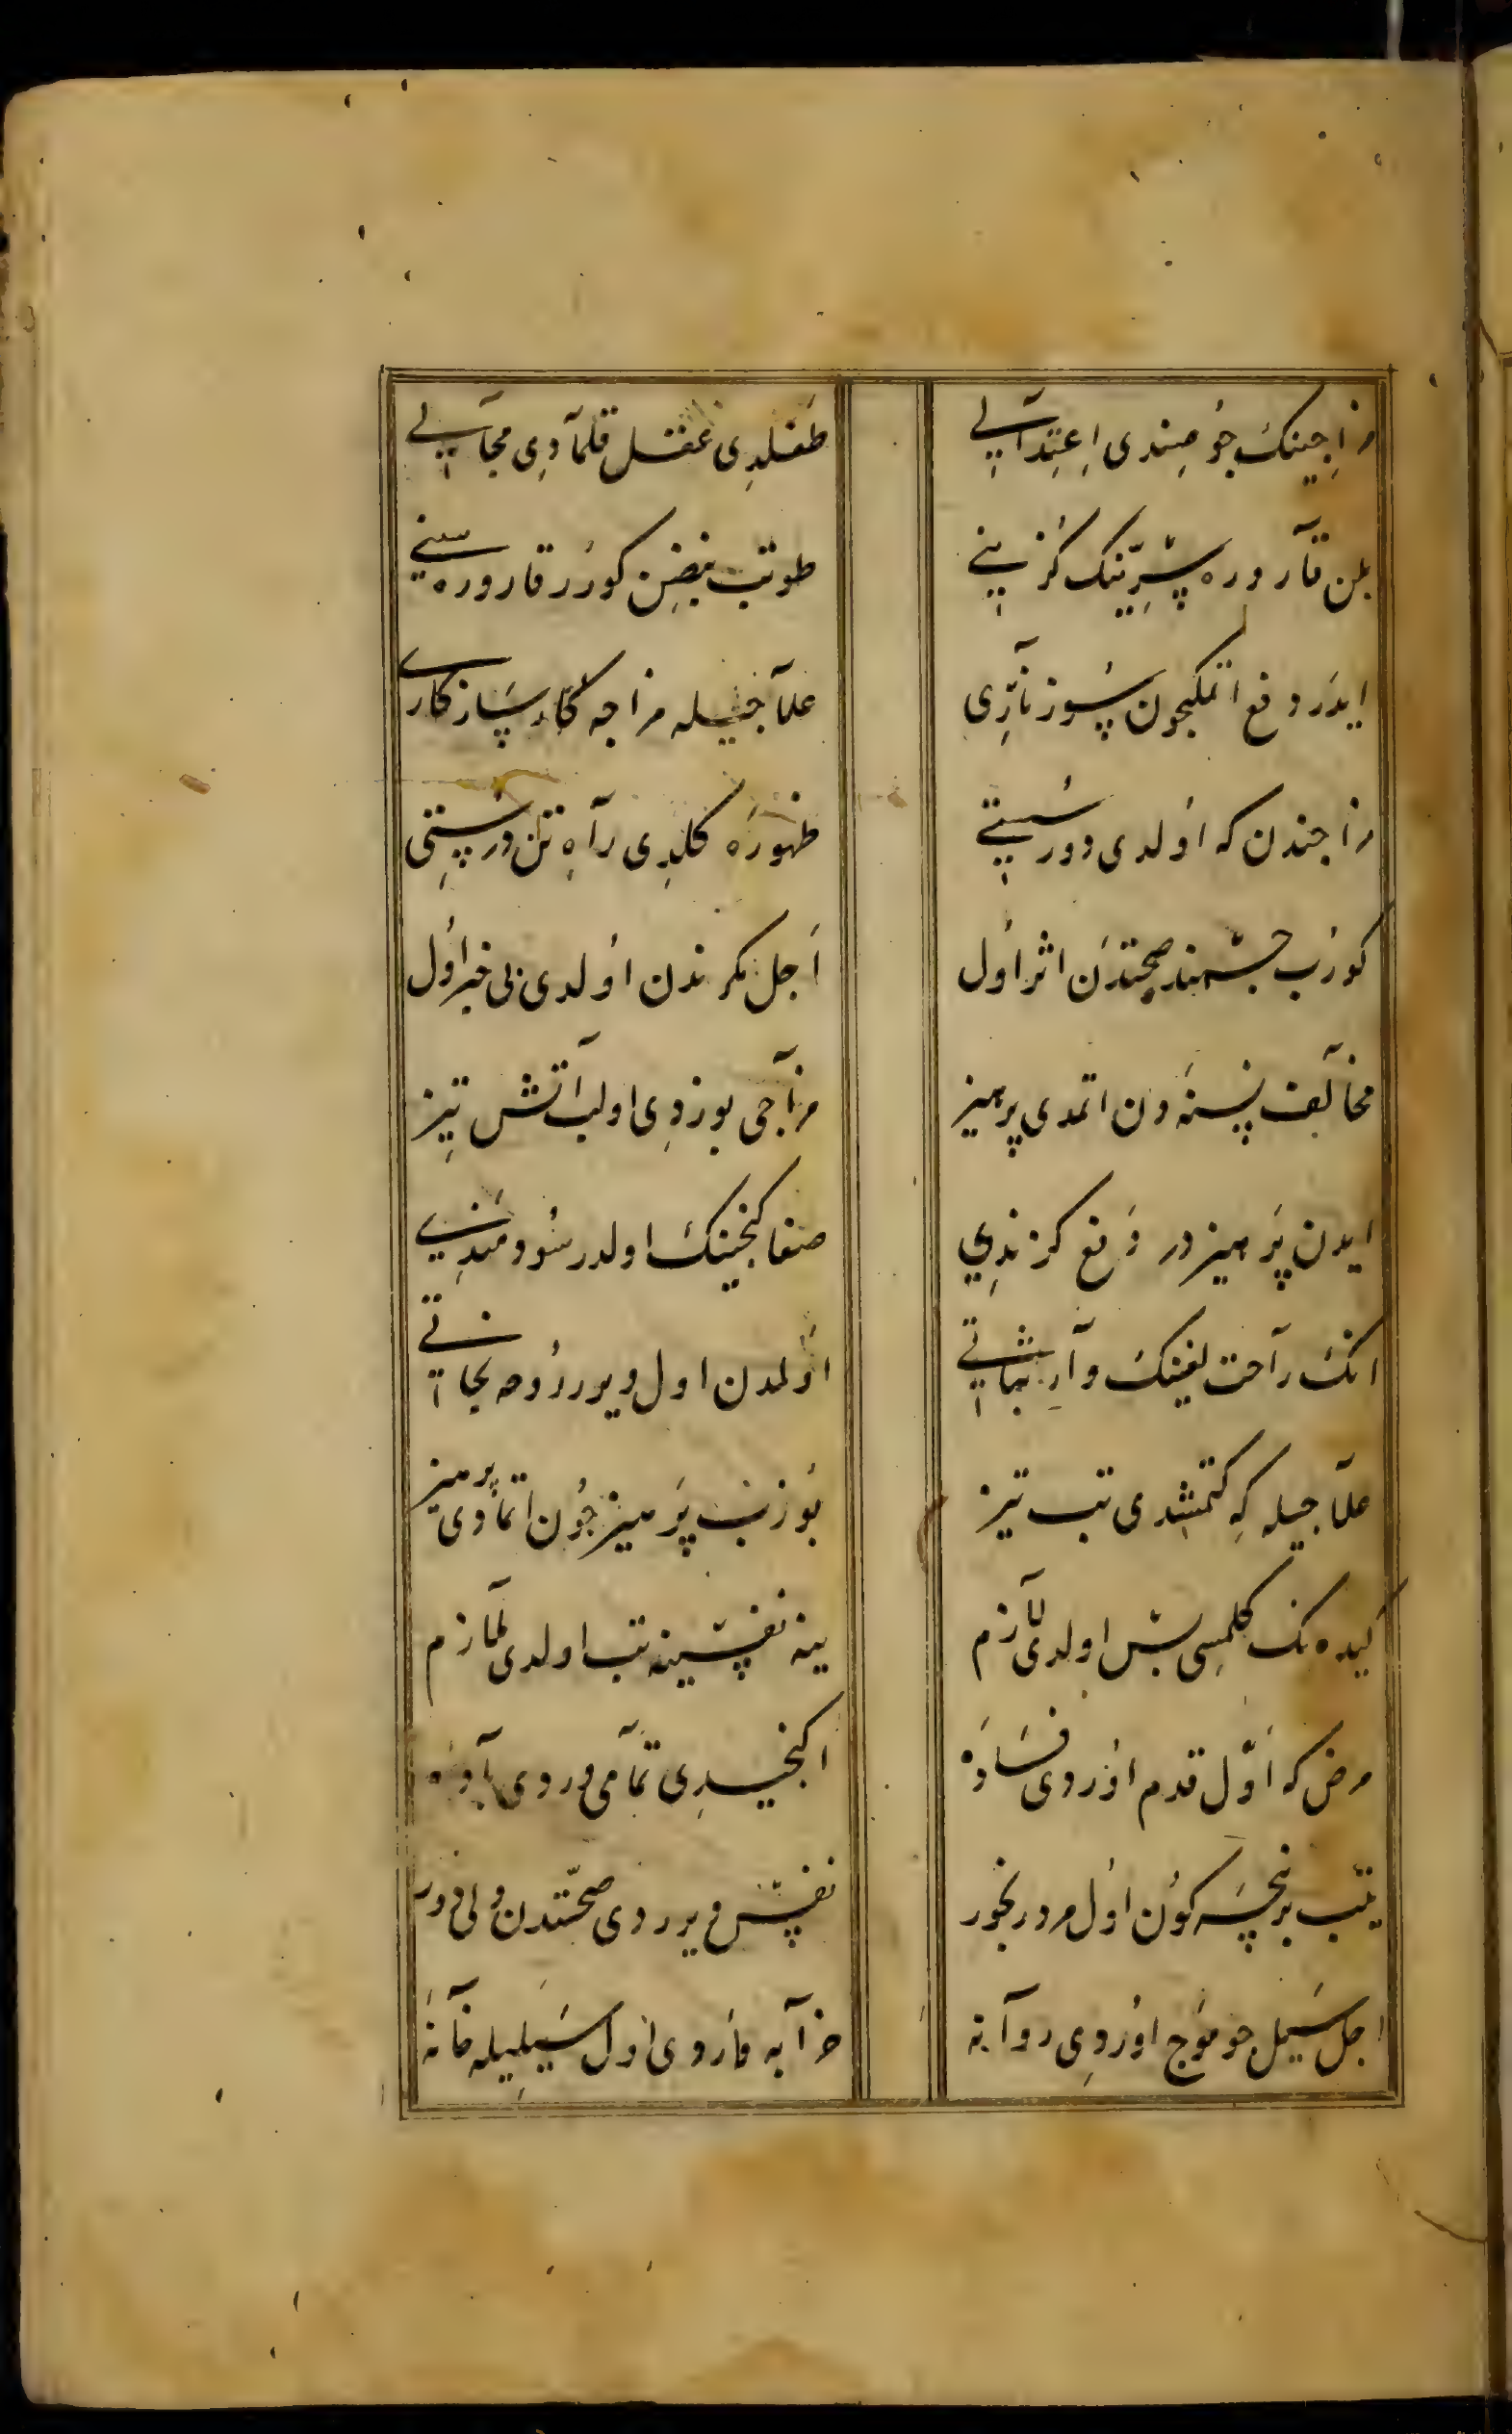 مزاجینک جو صِندی اِعتِدالی
طغلدی عقل قلمادی مجالی
بلن قاروره سِرّینک کزینی
طوتب نبضِن کورُر قاروره سینی
ایدَر دفع اتمکیچون سوز نازی
علاجیله مزاجه کاه سازکاری
مزاجندن که اولدی دور سستی
ظهورَه کلدِی راهِ تن درستی
کورُب جسمنده صحتدَن اثر اول
اَجل مکرندن اولدی بی خبر اول
مخالِف نسنَه دن اتمدی پرهیز
مزاجی بوزدِی اولب آتش تِیز
ایدن پَرهیزدر دَفع کزندِی
صفا کنجینک اولدر سُودمندی
انک راحت لغینک وار ثباتی
اولمدن اول ویرر رُوحه نجاتی
علاجیله کِه کتمشدی تب تیز
بوزب پَرهیز جُون اتمادی پرهیز
کیده نک کلمِسی بس اولدی لازم
ینه نفسینه تب اولدی ملازم
مرض که اَوّل قدم اوردی فسادَه
اکنجیسِدی تمامی وردی باده
یتب بر نیچه کون اول مرد رنجور
نفس ویرردی صحّتدن ولی دور
اجل سَیلی جو مَوج اوردِی روانه
خرابه واردی اول سَیلِیله خانه